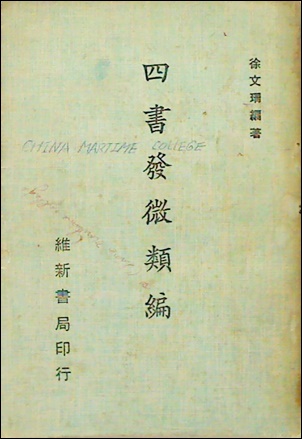 徐文珊編著
四書發微類編
CHINA MARTIME COLLEGE
維新書局印行